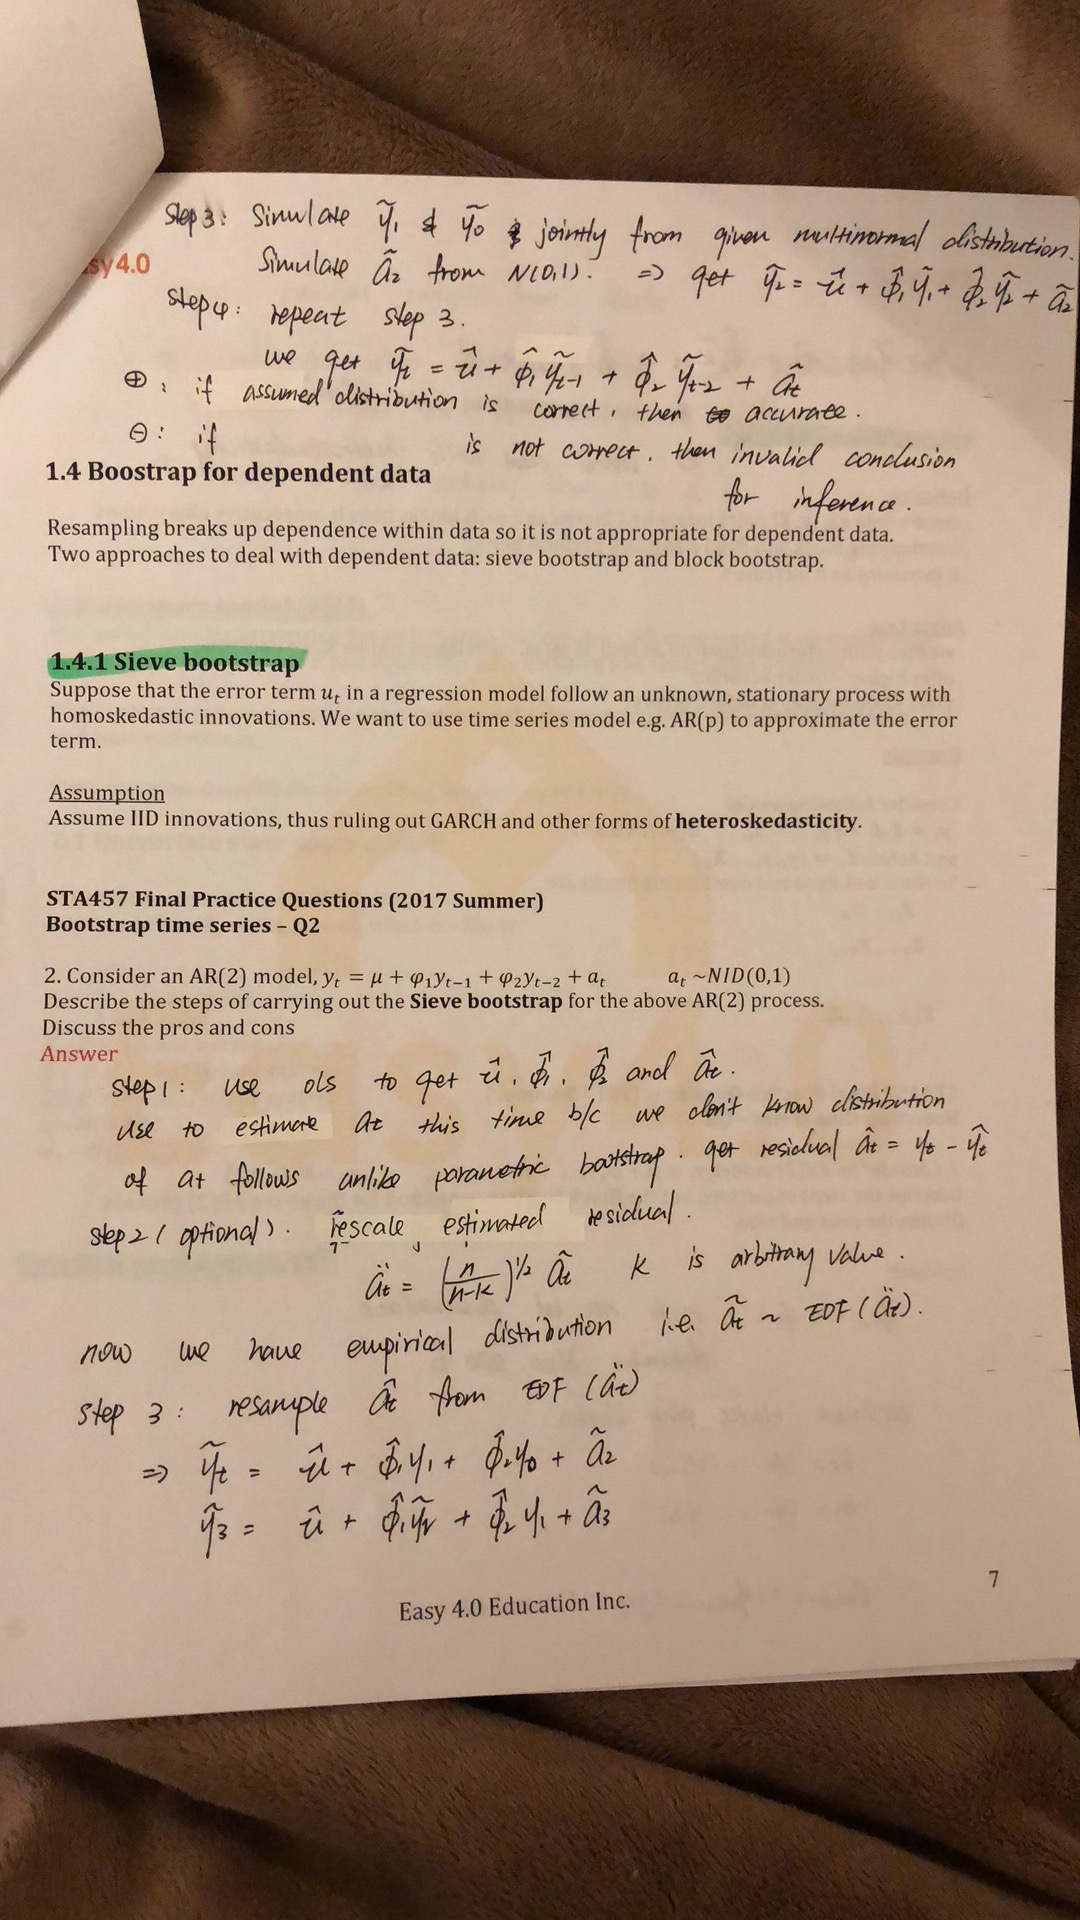 Step 3: Simulate ỹ₁ & ỹ₀ jointly from given multinormal distribution.
sy4.0
Simulate ã₂ from N(0,1). => get ỹ₂ = û + φ̂₁ỹ₁ + φ̂₂ỹ₂ + ã₂
Step 4: repeat step 3.
we get ỹt = û + φ̂₁ỹt-1 + φ̂₂ỹt-2 + ãt
⊕: if assumed distribution is correct, then accurate.
⊖: if is not correct, then invalid conclusion
for inference.
1.4 Boostrap for dependent data
Resampling breaks up dependence within data so it is not appropriate for dependent data.
Two approaches to deal with dependent data: sieve bootstrap and block bootstrap.
1.4.1 Sieve bootstrap
Suppose that the error term uₜ in a regression model follow an unknown, stationary process with
homoskedastic innovations. We want to use time series model e.g. AR(p) to approximate the error
term.
Assumption
Assume IID innovations, thus ruling out GARCH and other forms of heteroskedasticity.
STA457 Final Practice Questions (2017 Summer)
Bootstrap time series – Q2
2. Consider an AR(2) model, yₜ = μ + φ₁yₜ₋₁ + φ₂yₜ₋₂ + aₜ aₜ ~NID(0,1)
Describe the steps of carrying out the Sieve bootstrap for the above AR(2) process.
Discuss the pros and cons
Answer
Step 1: use ols to get û, φ̂₁, φ̂₂ and ât.
Use to estimate at this time b/c we don't know distribution
of at follows unlike parametric bootstrap. get residual ât = yt - ŷt
Step 2 (optional). rescale estimated residual.
ät = (n/n-k)^1/2 ât k is arbitrary value.
now we have empirical distribution i.e. ãt ~ EDF(ät).
Step 3: resample ãt from EDF (ät)
=> ỹt = û + φ̂₁y₁ + φ̂₂y₀ + ã₂
ỹ₃ = û + φ̂₁ỹ₂ + φ̂₂y₁ + ã₃
7
Easy 4.0 Education Inc.